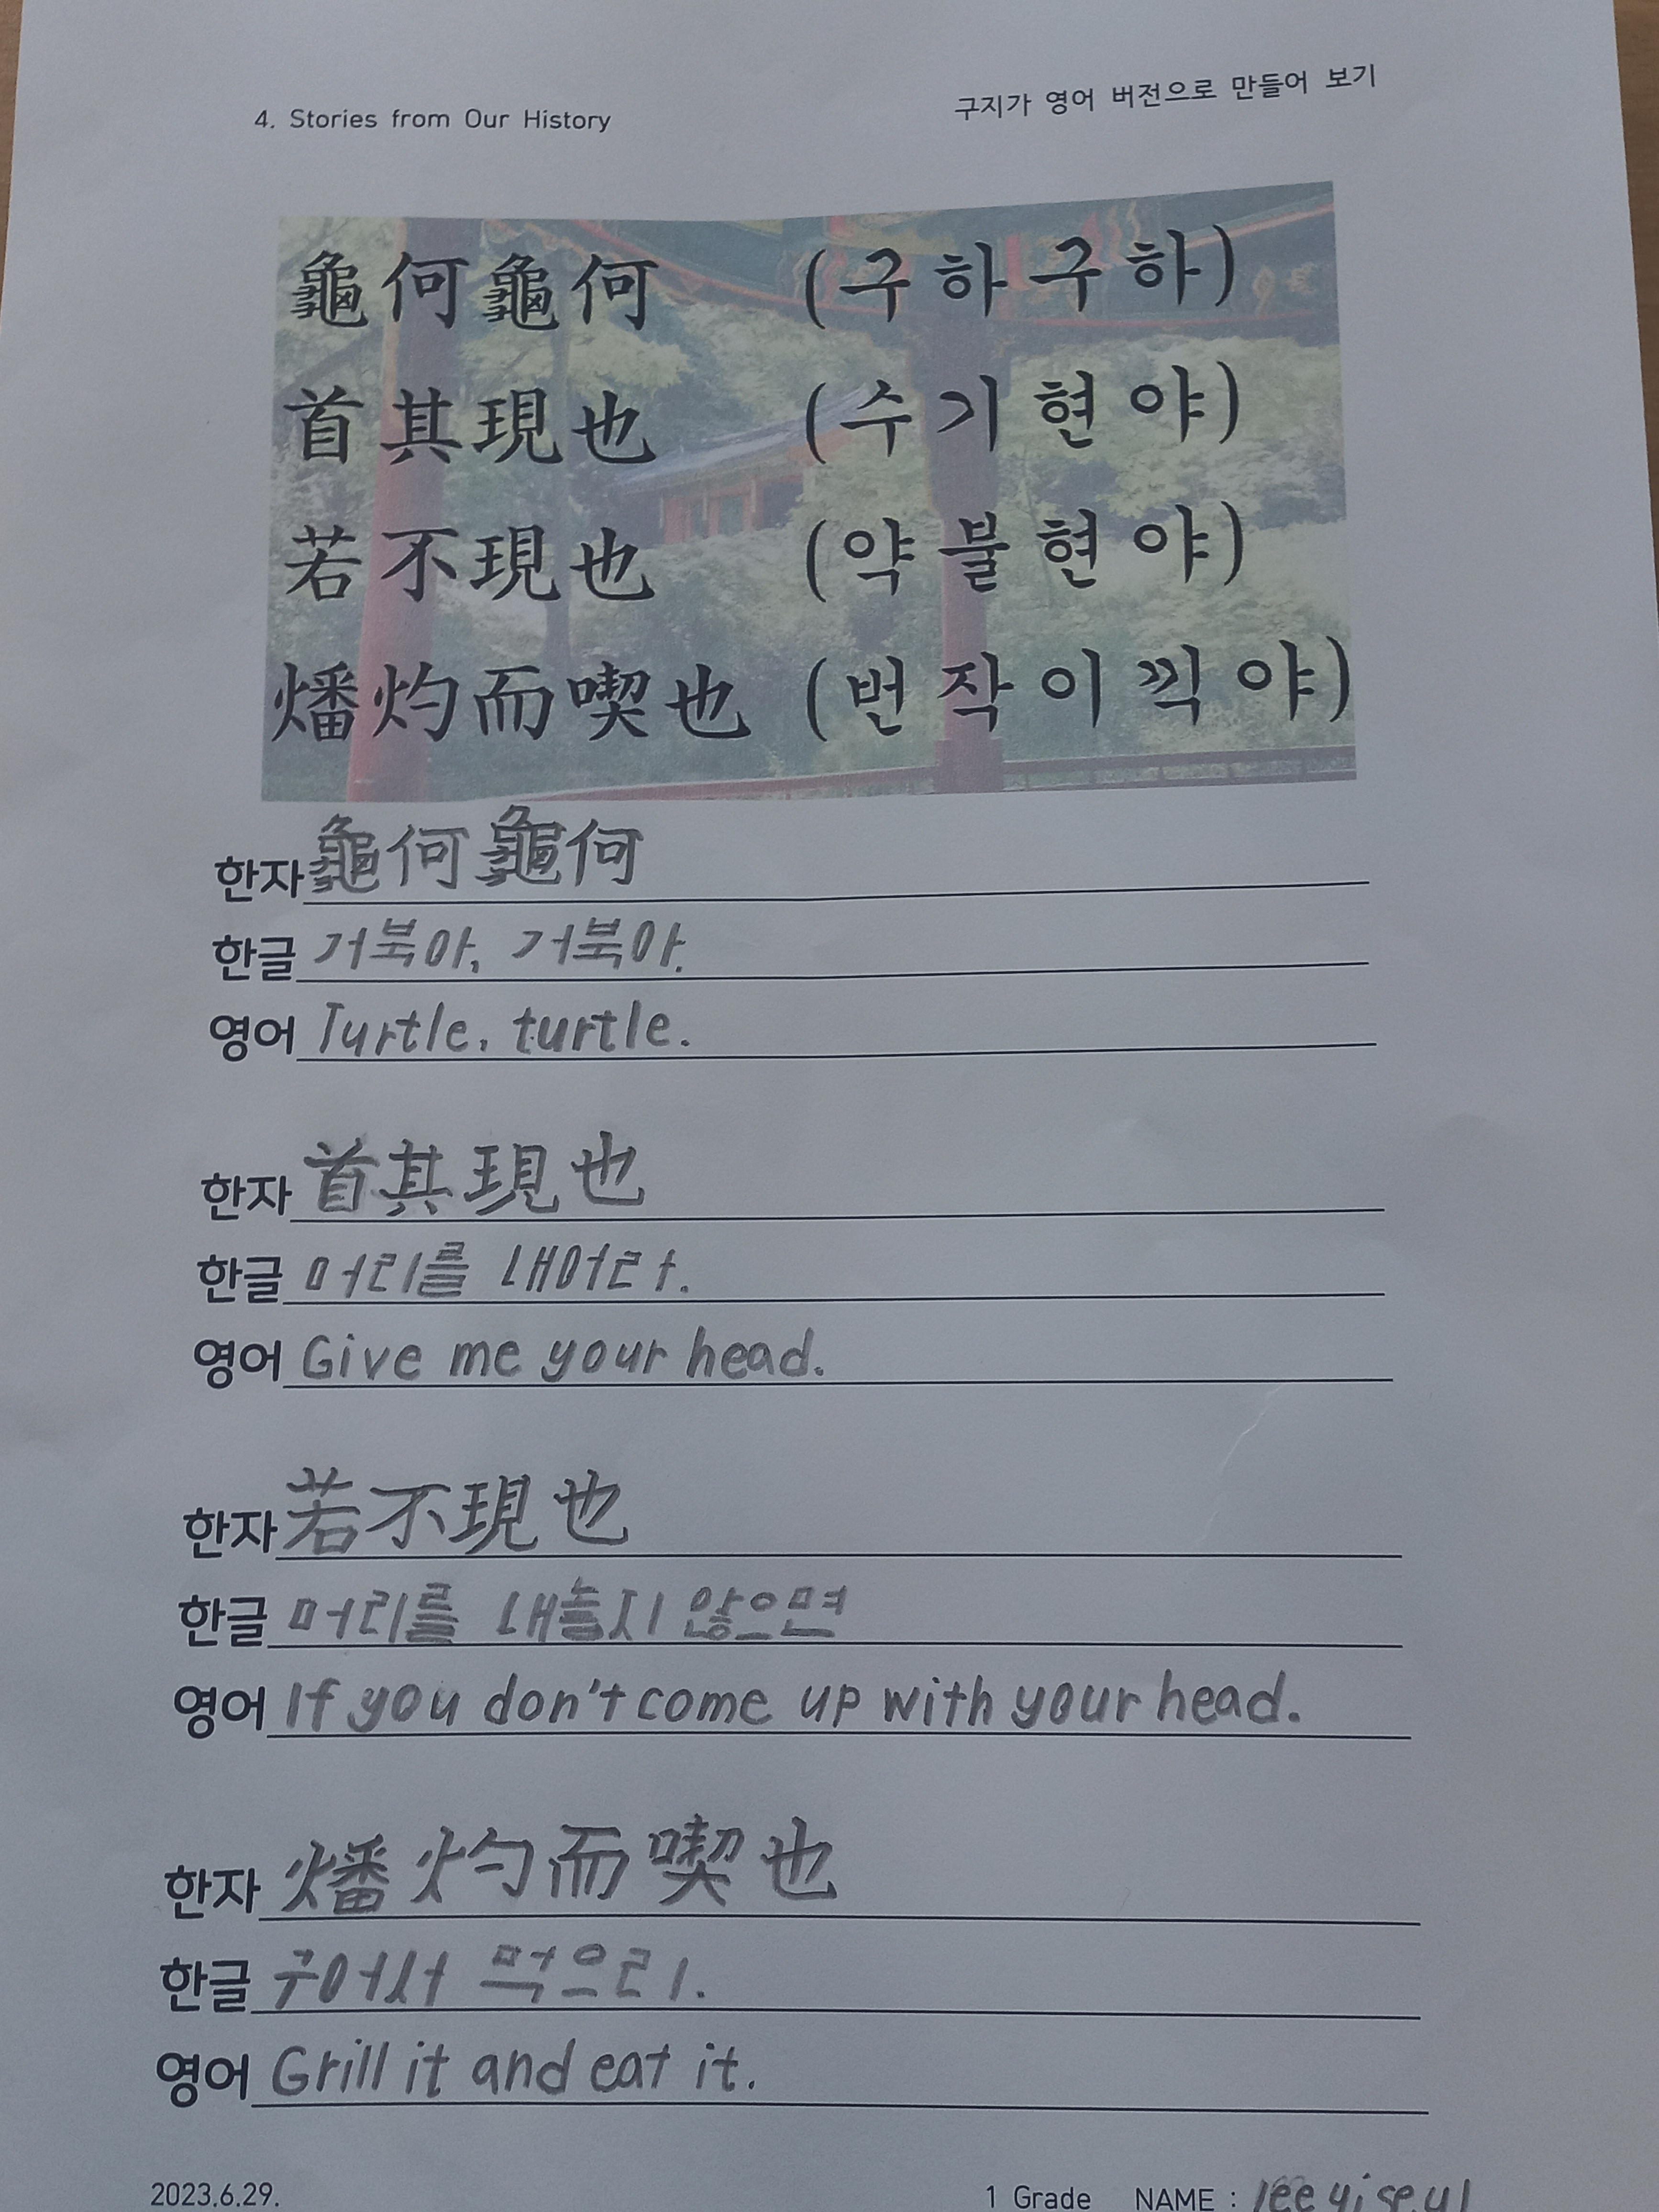 4. Stories from Our History
구지가 영어 버전으로 만들어 보기
龜何龜何 (구하구하)
首其現也 (수기현야)
若不現也 (약불현야)
燔灼而喫也 (번작이끽야)
한자 龜何龜何
한글 거북아, 거북아.
영어 Turtle, turtle.
한자 首其現也
한글 머리를 내어라.
영어 Give me your head.
한자 若不現也
한글 머리를 내놓지 않으면
영어 If you don't come up with your head.
한자 燔灼而喫也
한글 구어서 먹으리.
영어 Grill it and eat it.
2023.6.29.
1 Grade NAME : lee yi seul